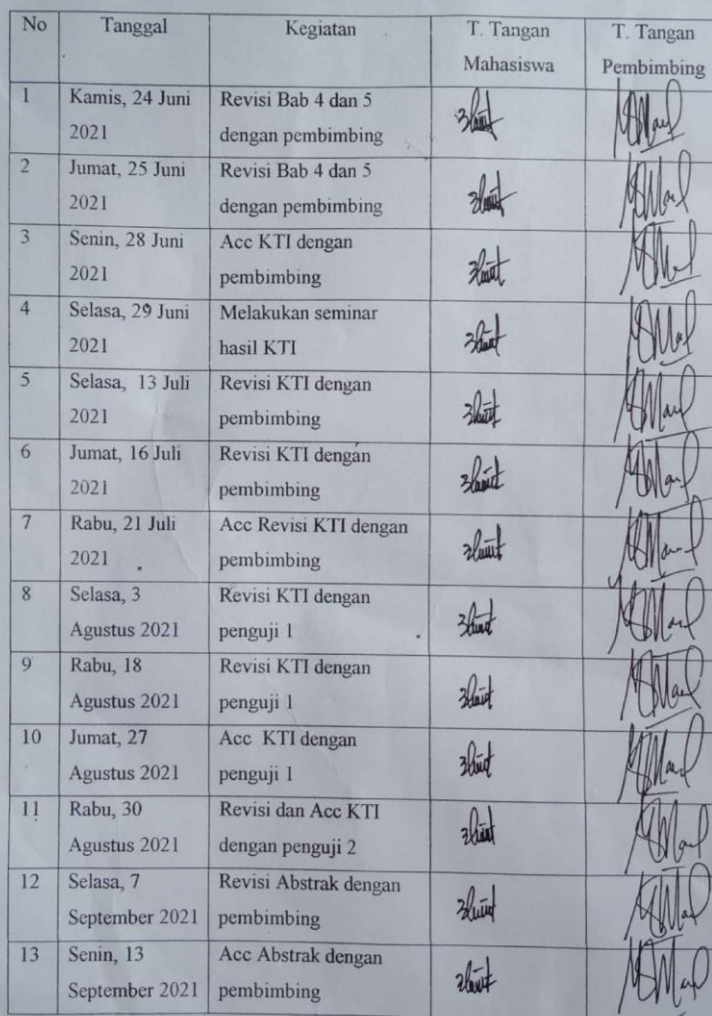 No Tanggal Kegiatan T. Tangan Mahasiswa T. Tangan Pembimbing
1 Kamis, 24 Juni 2021 Revisi Bab 4 dan 5 dengan pembimbing
2 Jumat, 25 Juni 2021 Revisi Bab 4 dan 5 dengan pembimbing
3 Senin, 28 Juni 2021 Acc KTI dengan pembimbing
4 Selasa, 29 Juni 2021 Melakukan seminar hasil KTI
5 Selasa, 13 Juli 2021 Revisi KTI dengan pembimbing
6 Jumat, 16 Juli 2021 Revisi KTI dengan pembimbing
7 Rabu, 21 Juli 2021 Acc Revisi KTI dengan pembimbing
8 Selasa, 3 Agustus 2021 Revisi KTI dengan penguji 1
9 Rabu, 18 Agustus 2021 Revisi KTI dengan penguji 1
10 Jumat, 27 Agustus 2021 Acc KTI dengan penguji 1
11 Rabu, 30 Agustus 2021 Revisi dan Acc KTI dengan penguji 2
12 Selasa, 7 September 2021 Revisi Abstrak dengan pembimbing
13 Senin, 13 September 2021 Acc Abstrak dengan pembimbing